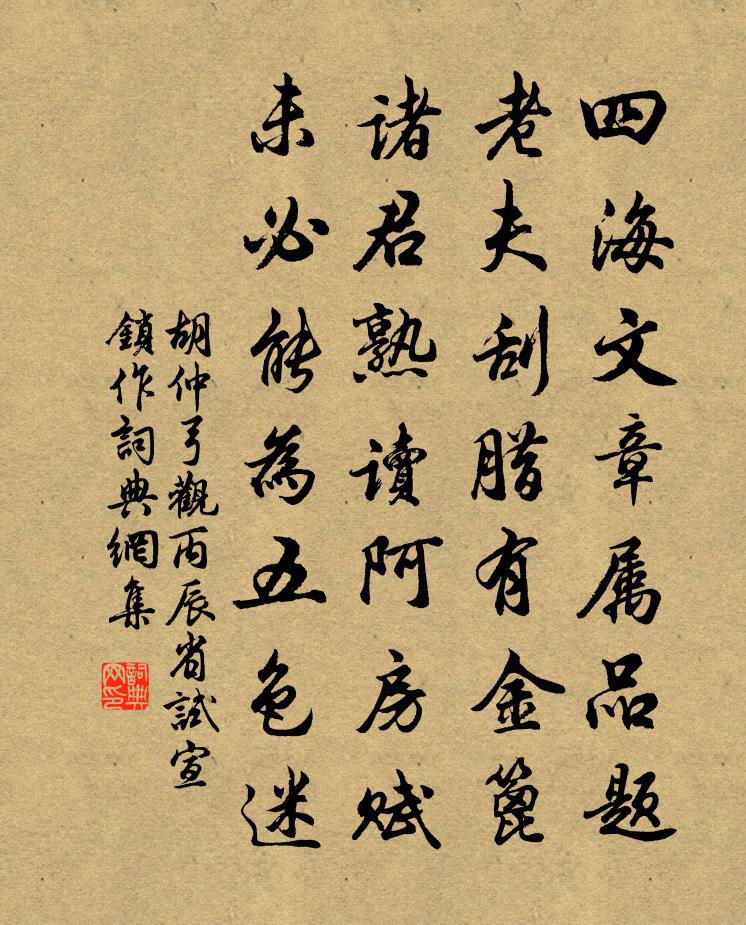 四海文章属品题
老夫刮腊有金篦
诸君熟讀阿房赋
未必能為五色迷
胡仲弓觀丙辰省試宣
鎖作詞典網集
詞典
网印